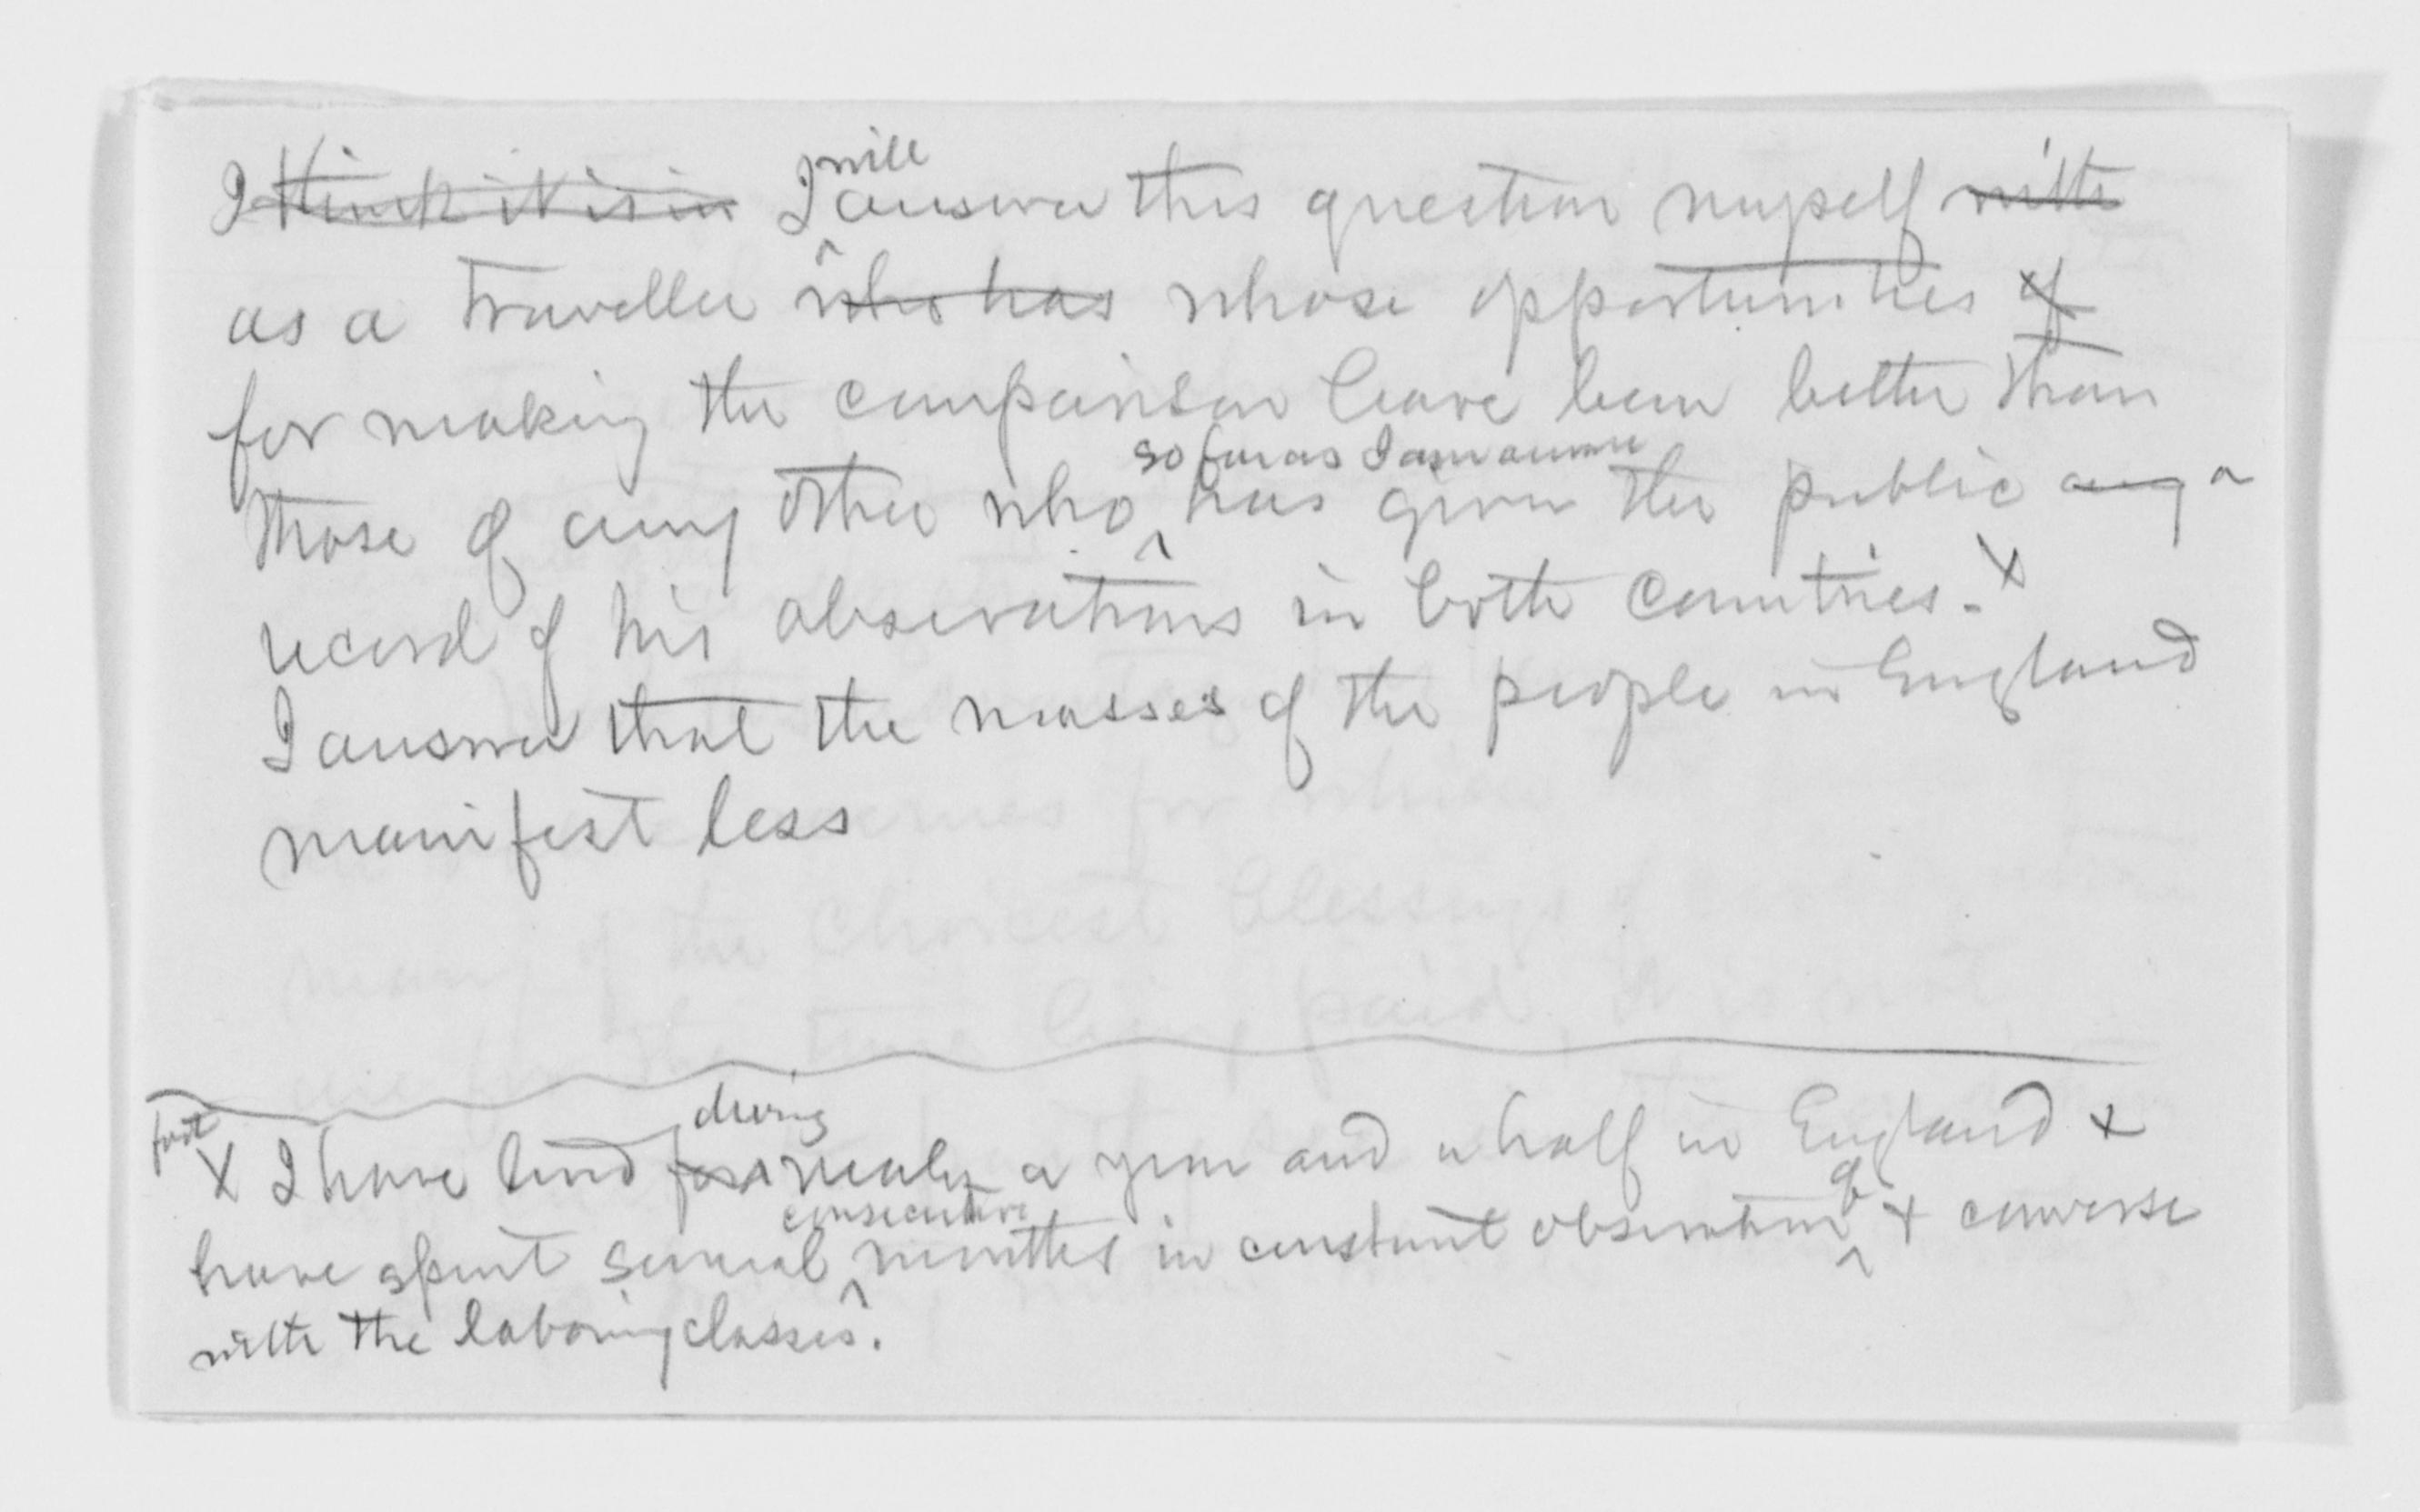 I think it is in I will answer this question myself with
as a traveller who has whose opportunities of
for making the comparison have been better than
those of any other who so far as I am aware has given the public any a
record of his observations in both countries. x
I answer that the masses of the people in England
manifest less
many of the choicest blessings of
foot
x I have lived for during nearly a year and a half in England &
have spent several consecutive months in constant observation of & converse
with the laboring classes.